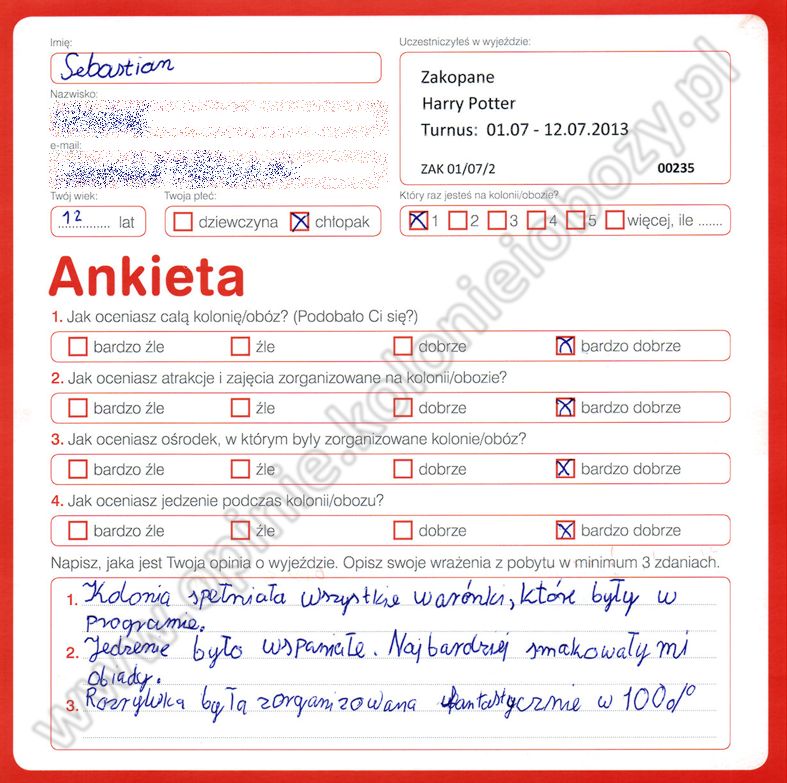 Imię:
Sebastian
Uczestniczyłeś w wyjeździe:
Zakopane
Harry Potter
Turnus: 01.07 - 12.07.2013
ZAK 01/07/2 00235
Nazwisko:
e-mail:
Twój wiek:
12 lat
Twoja płeć:
dziewczyna chłopak
Który raz jesteś na kolonii/obozie?
1 2 3 4 5 więcej, ile .......
Ankieta
1. Jak oceniasz całą kolonię/obóz? (Podobało Ci się?)
bardzo źle źle dobrze bardzo dobrze
2. Jak oceniasz atrakcje i zajęcia zorganizowane na kolonii/obozie?
bardzo źle źle dobrze bardzo dobrze
3. Jak oceniasz ośrodek, w którym były zorganizowane kolonie/obóz?
bardzo źle źle dobrze bardzo dobrze
4. Jak oceniasz jedzenie podczas kolonii/obozu?
bardzo źle źle dobrze bardzo dobrze
Napisz, jaka jest Twoja opinia o wyjeździe. Opisz swoje wrażenia z pobytu w minimum 3 zdaniach.
1. Kolonia spełniała wszystkie warónki, które były w
programie.
2. Jedzenie było wspaniałe. Najbardziej smakowały mi
obiady.
3. Rozrywka była zorganizowana fantastycznie w 100%
www.opinie.kolonieiobozy.pl